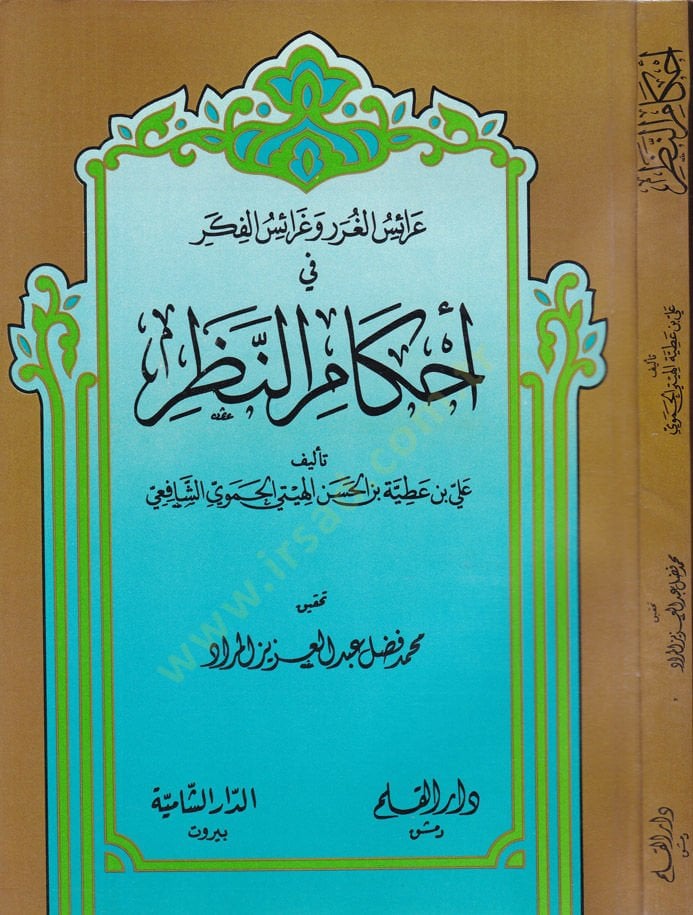 عَرَائِسُ الغُرَرِ وَغَرَائِسُ الفِكَرِ
في
أَحْكَامِ النَّظَرِ
تأليف
عَلِيّ بن عَطِيَّة بن الحَسَن الهيتي الحَمَوي الشَّافِعِيّ
تحقيق
محمد فضل عبد العزيز المراد
دار القلم
دمشق
الدار الشامية
بيروت
أَحْكَامِ النَّظَرِ
تأليف
علي بن عطية الهيتي الحموي
تحقيق
محمد فضل عبد العزيز المراد
دار القلم
دمشق
www.irsad.com.tr